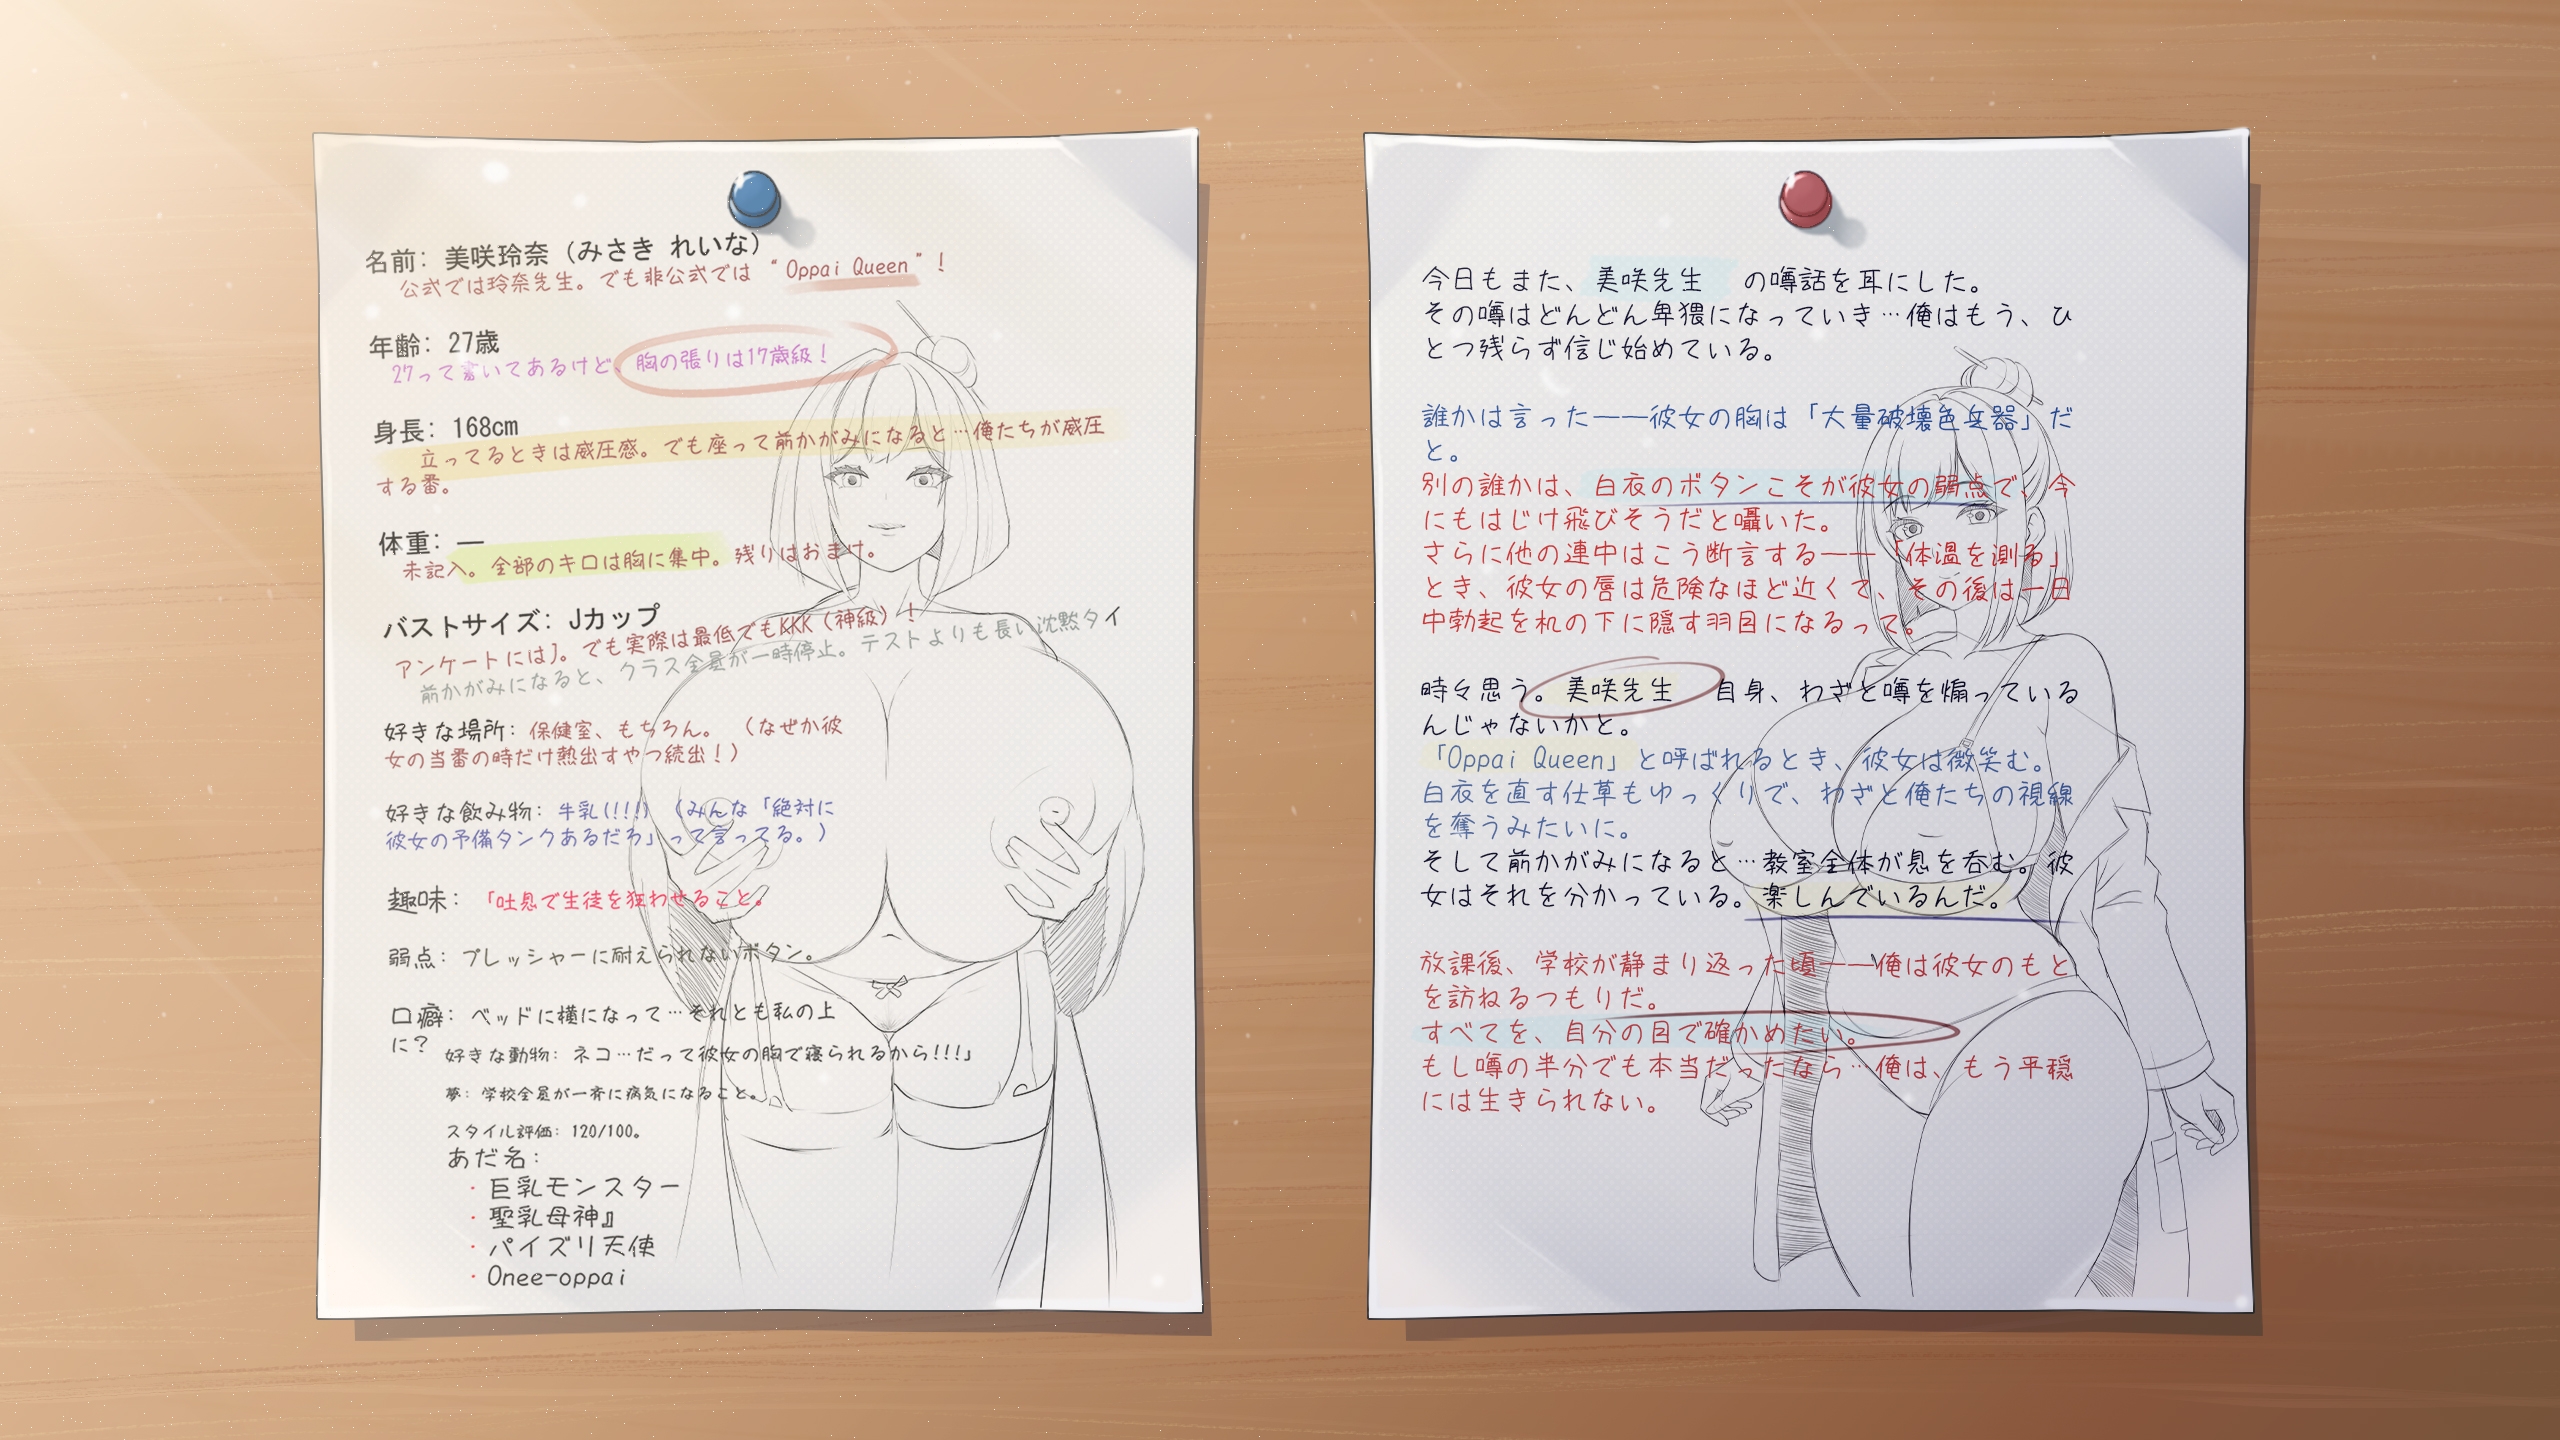 名前: 美咲玲奈 (みさき れいな)
公式では玲奈先生。でも非公式では “Oppai Queen”！
年齢: 27歳
27って書いてあるけど、胸の張りは17歳級！
身長: 168cm
立ってるときは威圧感。でも座って前かがみになると…俺たちが威圧
する番。
体重: ―
未記入。全部のキロは胸に集中。残りはおまけ。
バストサイズ: Jカップ
アンケートにはJ。でも実際は最低でもKKK（神級）！
前かがみになると、クラス全員が一時停止。テストよりも長い沈黙タイ
好きな場所: 保健室、もちろん。 （なぜか彼
女の当番の時だけ熱出すやつ続出！）
好きな飲み物: 牛乳(!!!) （みんな「絶対に
彼女の予備タンクあるだろ」って言ってる。）
趣味: 「吐息で生徒を狂わせること。
弱点: プレッシャーに耐えられないボタン。
口癖: ベッドに横になって…それとも私の上
に？
好きな動物: ネコ…だって彼女の胸で寝られるから!!!」
夢: 学校全員が一斉に病気になること。
スタイル評価: 120/100。
あだ名:
・巨乳モンスター
・聖乳母神』
・パイズリ天使
・Onee-oppai
今日もまた、美咲先生 の噂話を耳にした。
その噂はどんどん卑猥になっていき…俺はもう、ひ
とつ残らず信じ始めている。
誰かは言った――彼女の胸は「大量破壊色兵器」だ
と。
別の誰かは、白衣のボタンこそが彼女の弱点で、今
にもはじけ飛びそうだと囁いた。
さらに他の連中はこう断言する――「体温を測る」
とき、彼女の唇は危険なほど近くて、その後は一日
中勃起を机の下に隠す羽目になるって。
時々思う。美咲先生 自身、わざと噂を煽っている
んじゃないかと。
「Oppai Queen」と呼ばれるとき、彼女は微笑む。
白衣を直す仕草もゆっくりで、わざと俺たちの視線
を奪うみたいに。
そして前かがみになると…教室全体が息を呑む。彼
女はそれを分かっている。楽しんでいるんだ。
放課後、学校が静まり返った頃――俺は彼女のもと
を訪ねるつもりだ。
すべてを、自分の目で確かめたい。
もし噂の半分でも本当だったなら…俺は、もう平穏
には生きられない。